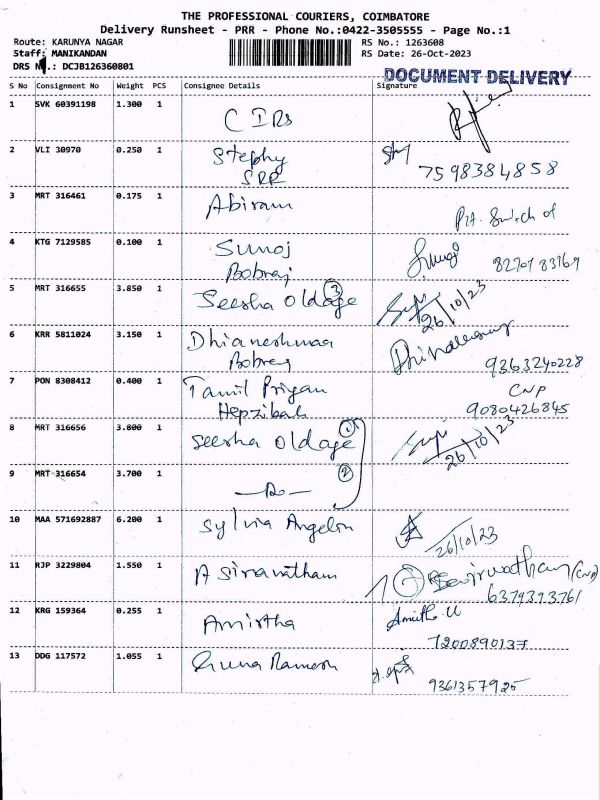 THE PROFESSIONAL COURIERS, COIMBATORE
Delivery Runsheet - PRR - Phone No.:0422-3505555 - Page No.:1
Route: KARUNYA NAGAR RS No.: 1263608
Staff: MANIKANDAN RS Date: 26-Oct-2023
DRS No.: DCJB126360801
DOCUMENT DELIVERY
S No Consignment No Weight PCS Consignee Details Signature
1 SVK 60391198 1.300 1 C I Rs
2 VLI 30970 0.250 1 Stephy
SRR 7598384858
3 MRT 316461 0.175 1 Abiram
4 KTG 7129585 0.100 1 Sunoj
Bobraj 8270783769
5 MRT 316655 3.850 1 Seesha oldage 3
26/10/23
6 KRR 5811024 3.150 1 Dhianeshwaa
9363240228
7 PON 8308412 0.400 1 Tamil Priyan CNP
Hepzibah 9080426845
8 MRT 316656 3.800 1 Seesha oldage 1
26/10/23
9 MRT 316654 3.700 1 2
10 MAA 571692887 6.200 1 Sylvia Angelin
26/10/23
11 RJP 3229804 1.550 1 Asirvatham (CNP)
6379393761
12 KRG 159364 0.255 1 Amirtha
7200890137
13 DDG 117572 1.055 1 Guna Ramesh
9361357925